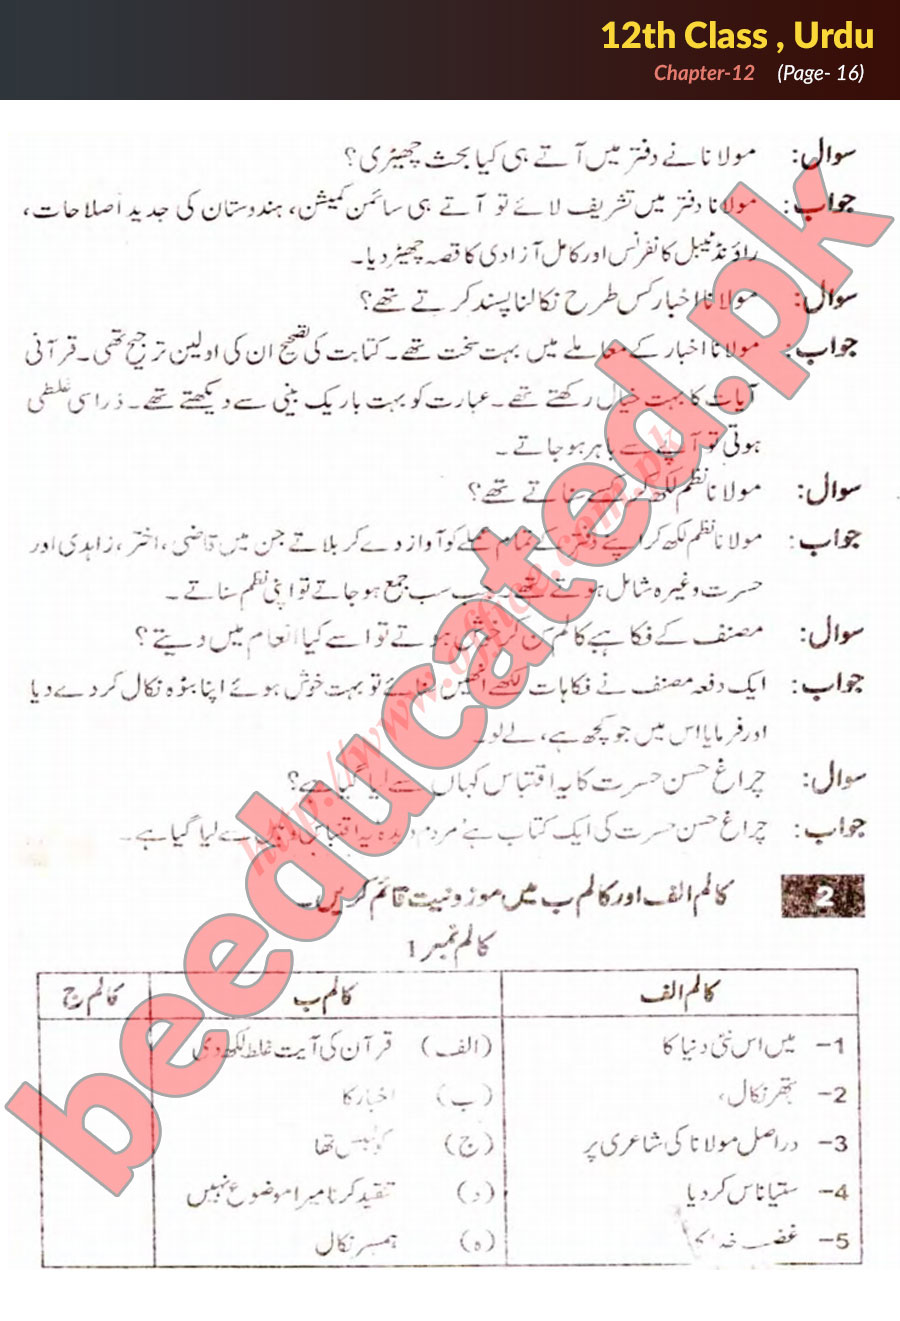 12th Class , Urdu
Chapter-12 (Page- 16)
سوال: مولانا نے دفتر میں آتے ہی کیا بحث چھیڑی؟
جواب: مولانا دفتر میں تشریف لائے تو آتے ہی سائمن کمیشن، ہندوستان کی جدید اصلاحات،
راؤنڈ ٹیبل کانفرنس اور کامل آزادی کا قصہ چھیڑ دیا۔
سوال: مولانا اخبار کس طرح نکالنا پسند کرتے تھے؟
جواب: مولانا اخبار کے معاملے میں بہت سخت تھے۔ کتابت کی تصحیح ان کی اولین ترجیح تھی۔ قرآنی
آیات کا بہت خیال رکھتے تھے۔ عبارت کو بہت باریک بینی سے دیکھتے تھے۔ ذرا سی غلطی
ہوتی تو آپے سے باہر ہو جاتے۔
سوال: مولانا نظم لکھ کر کسے سناتے تھے؟
جواب: مولانا نظم لکھ کر اپنے دفتر کے تمام عملے کو آواز دے کر بلاتے جن میں قاضی، اختر، زاہدی اور
حسرت وغیرہ شامل ہوتے تھے۔ جب سب جمع ہو جاتے تو اپنی نظم سناتے۔
سوال: مصنف کے فکاہیے کالم سن کر خوش ہوتے تو اسے کیا انعام میں دیتے؟
جواب: ایک دفعہ مصنف نے فکاہات لکھے انھیں سنائے تو بہت خوش ہوئے اپنا بٹوہ نکال کر دے دیا
اور فرمایا اس میں جو کچھ ہے، لے لو۔
سوال: چراغ حسن حسرت کا یہ اقتباس کہاں سے لیا گیا ہے؟
جواب: چراغ حسن حسرت کی ایک کتاب ہے مردم دیدہ یہ اقتباس وہیں سے لیا گیا ہے۔
2 کالم الف اور کالم ب میں موزونیت قائم کریں۔
کالم نمبر 1
کالم الف کالم ب کالم ج
1- میں اس نئی دنیا کا (الف) قرآن کی آیت غلط لکھ دی
2- پتھر نکال، (ب) اخبار کا
3- دراصل مولانا کی شاعری پر (ج) کولمبس تھا
4- ستیاناس کر دیا (د) تنقید کرنا میرا موضوع نہیں
5- غضب خدا کا (ہ) ہمسر نکال
beeducated.pk